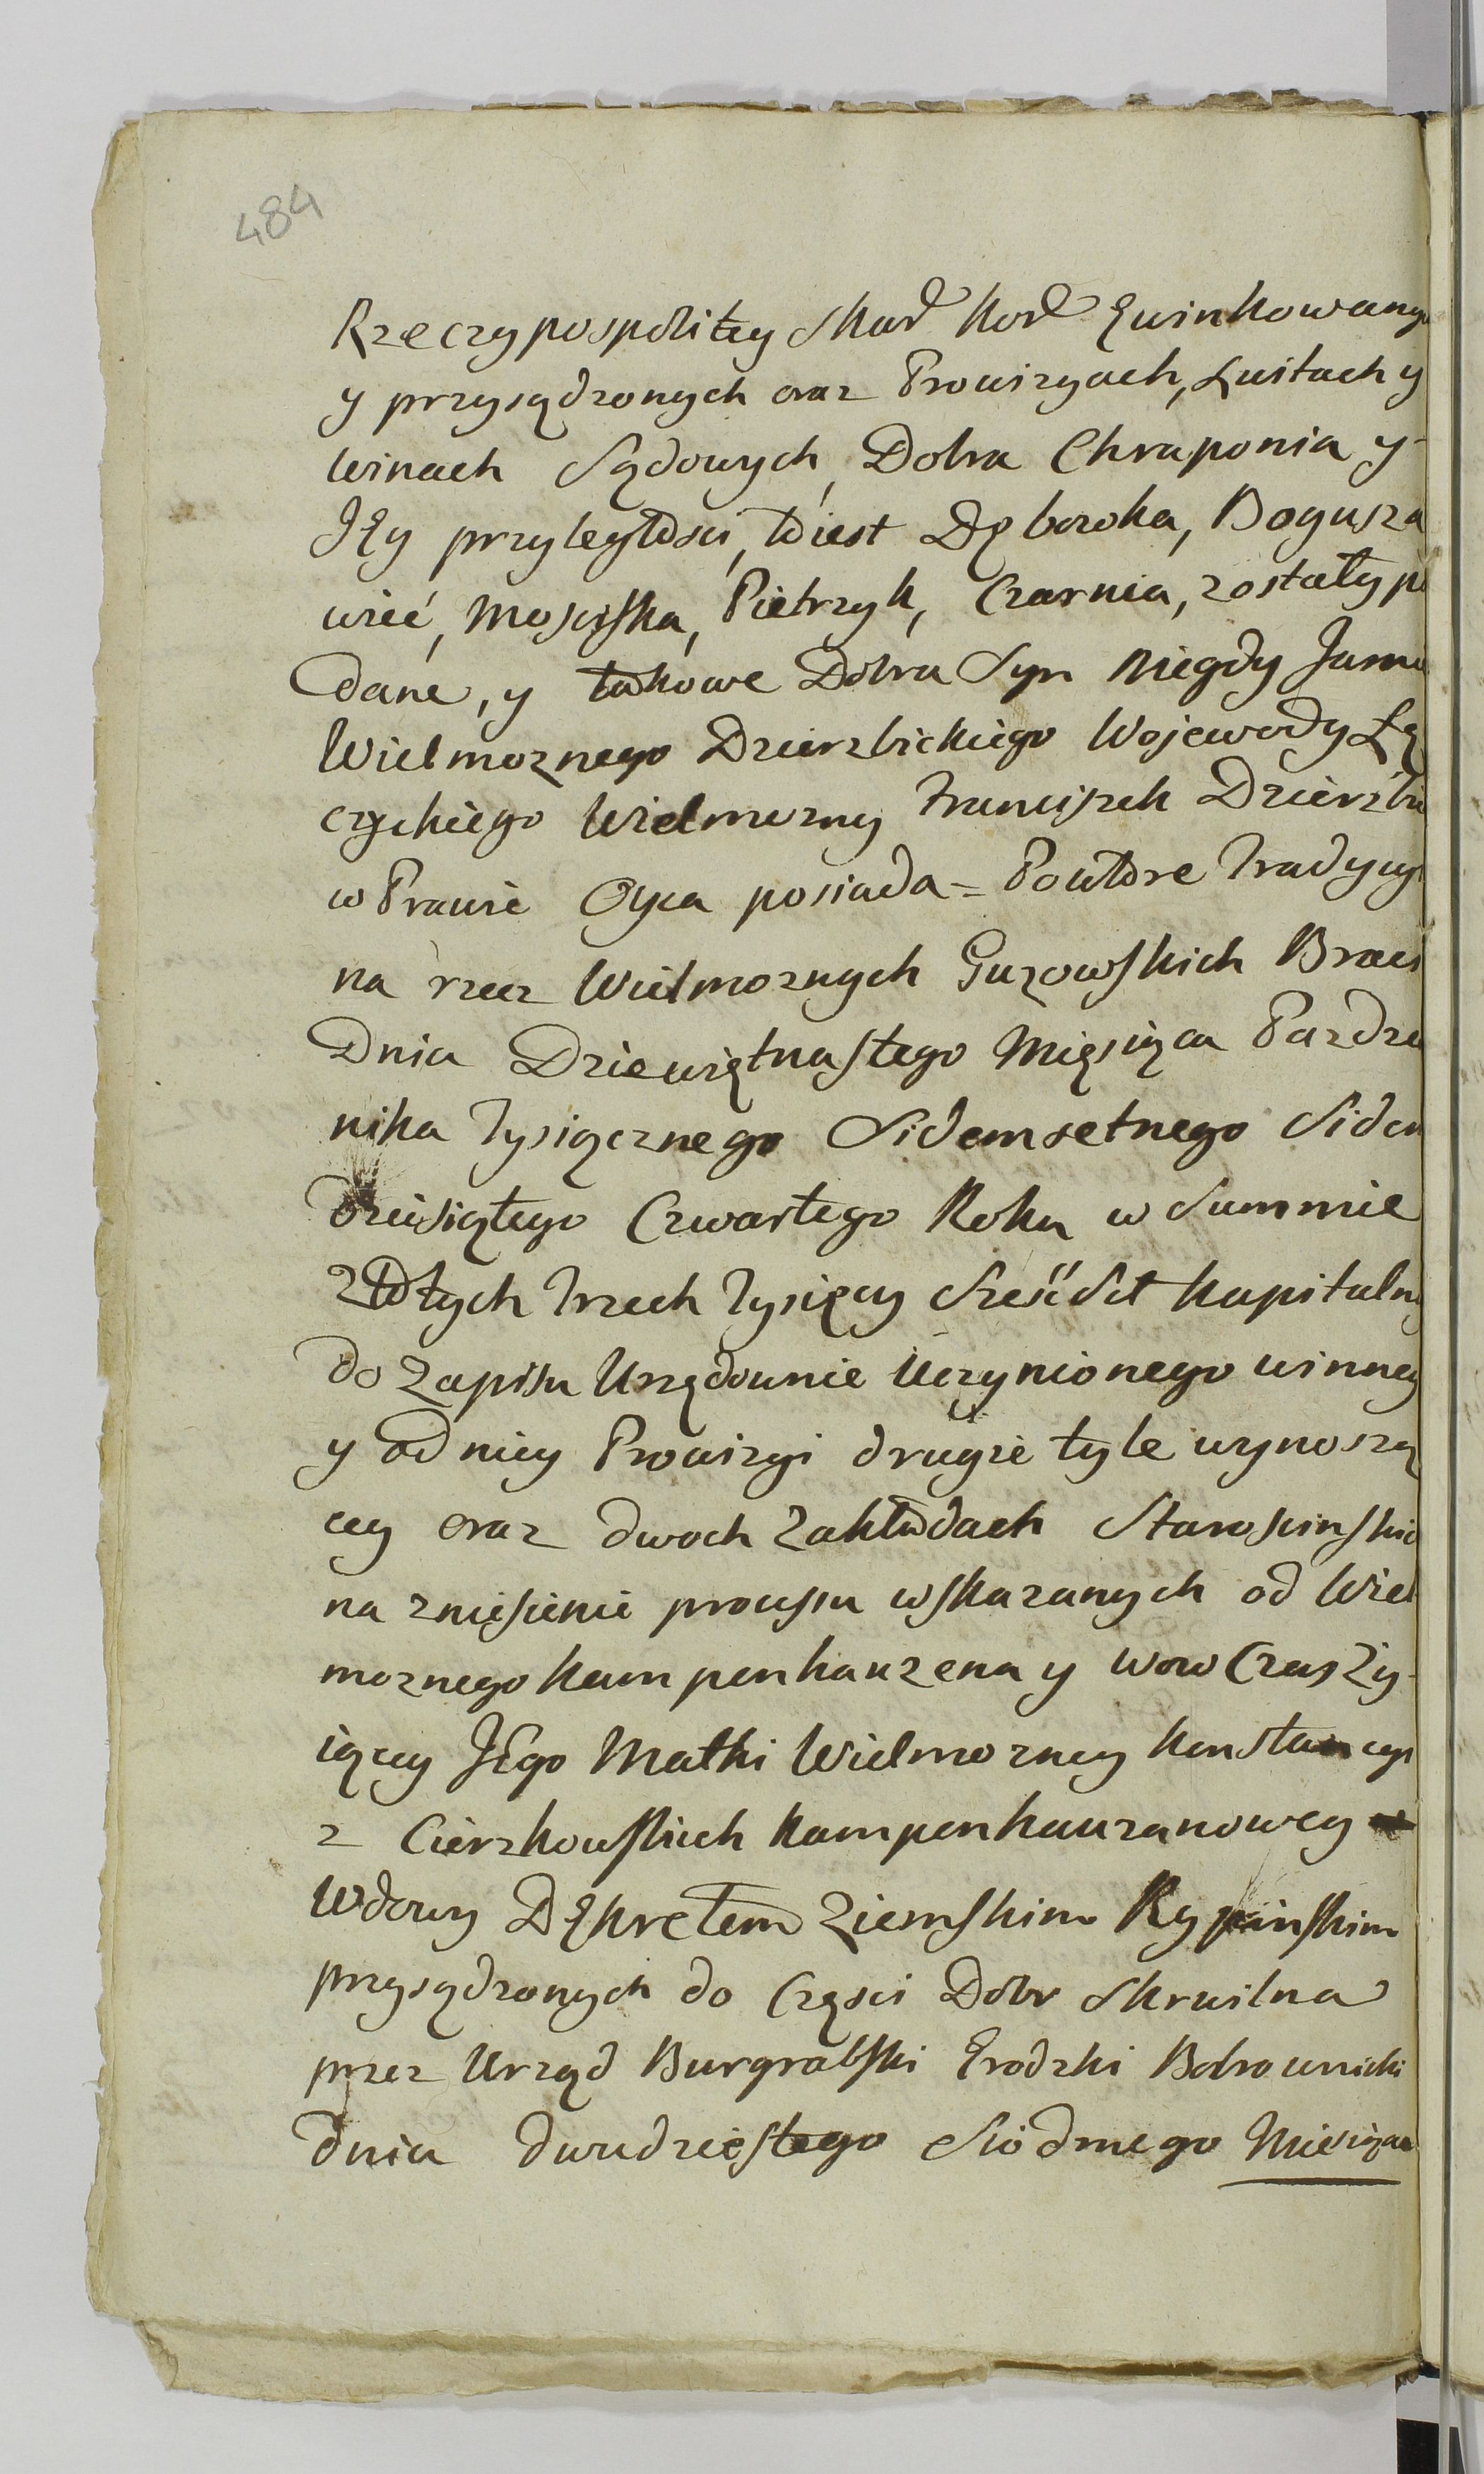 484
Rzeczypospolitey Skar Kor Ewinkowany
y przysądzonych oraz Prowizyach, Luitach y
winach Sądowych, Dobra Chraponia y
Iey przyległosci, to iest Dęboroka, Bogusza
wieć, Mosciska, Pietrzyk, Czarnia, zostały po
dane, y takowe Dobra Syn Niegdy Jasnie
Wielmoznego Dzierzbickiego Wojewody Łę
czyckiego Wielmozny Franciszek Dzierzbi
w Prawie Oyca posiada = Powtore Tradycyi
na rzecz Wielmoznych Guzowskich Braci
Dnia Dziewiętnastego Miesiąca Pazdzie
nika Tysiącznego Sidemsetnego Sidem
dziesiątego Czwartego Roku w Summie
Złotych Trzech Tysięcy Sześć Set Kapitalny
do Zapisu Urzędownie Uczynionego winney
y od niey Prowizyi drugie tyle wynoszą
cey oraz dwoch Zakładach Staroscinskich
na zniesienie processu wskazanych od Wiel
moznego Kampenhauzena y wow Czas Zy
iącey Jego Matki Wielmozney Konstancyi
z Cierzkowskich Kampenhauzanowey
Wdowy Dekretem Ziemskim Rypinskim
przysądzonych do Częsci Dobr Skrwilna
przez Urząd Burgrabski Grodzki Bobrownicki
dnia dwudziestego Siodmego Miesiąca